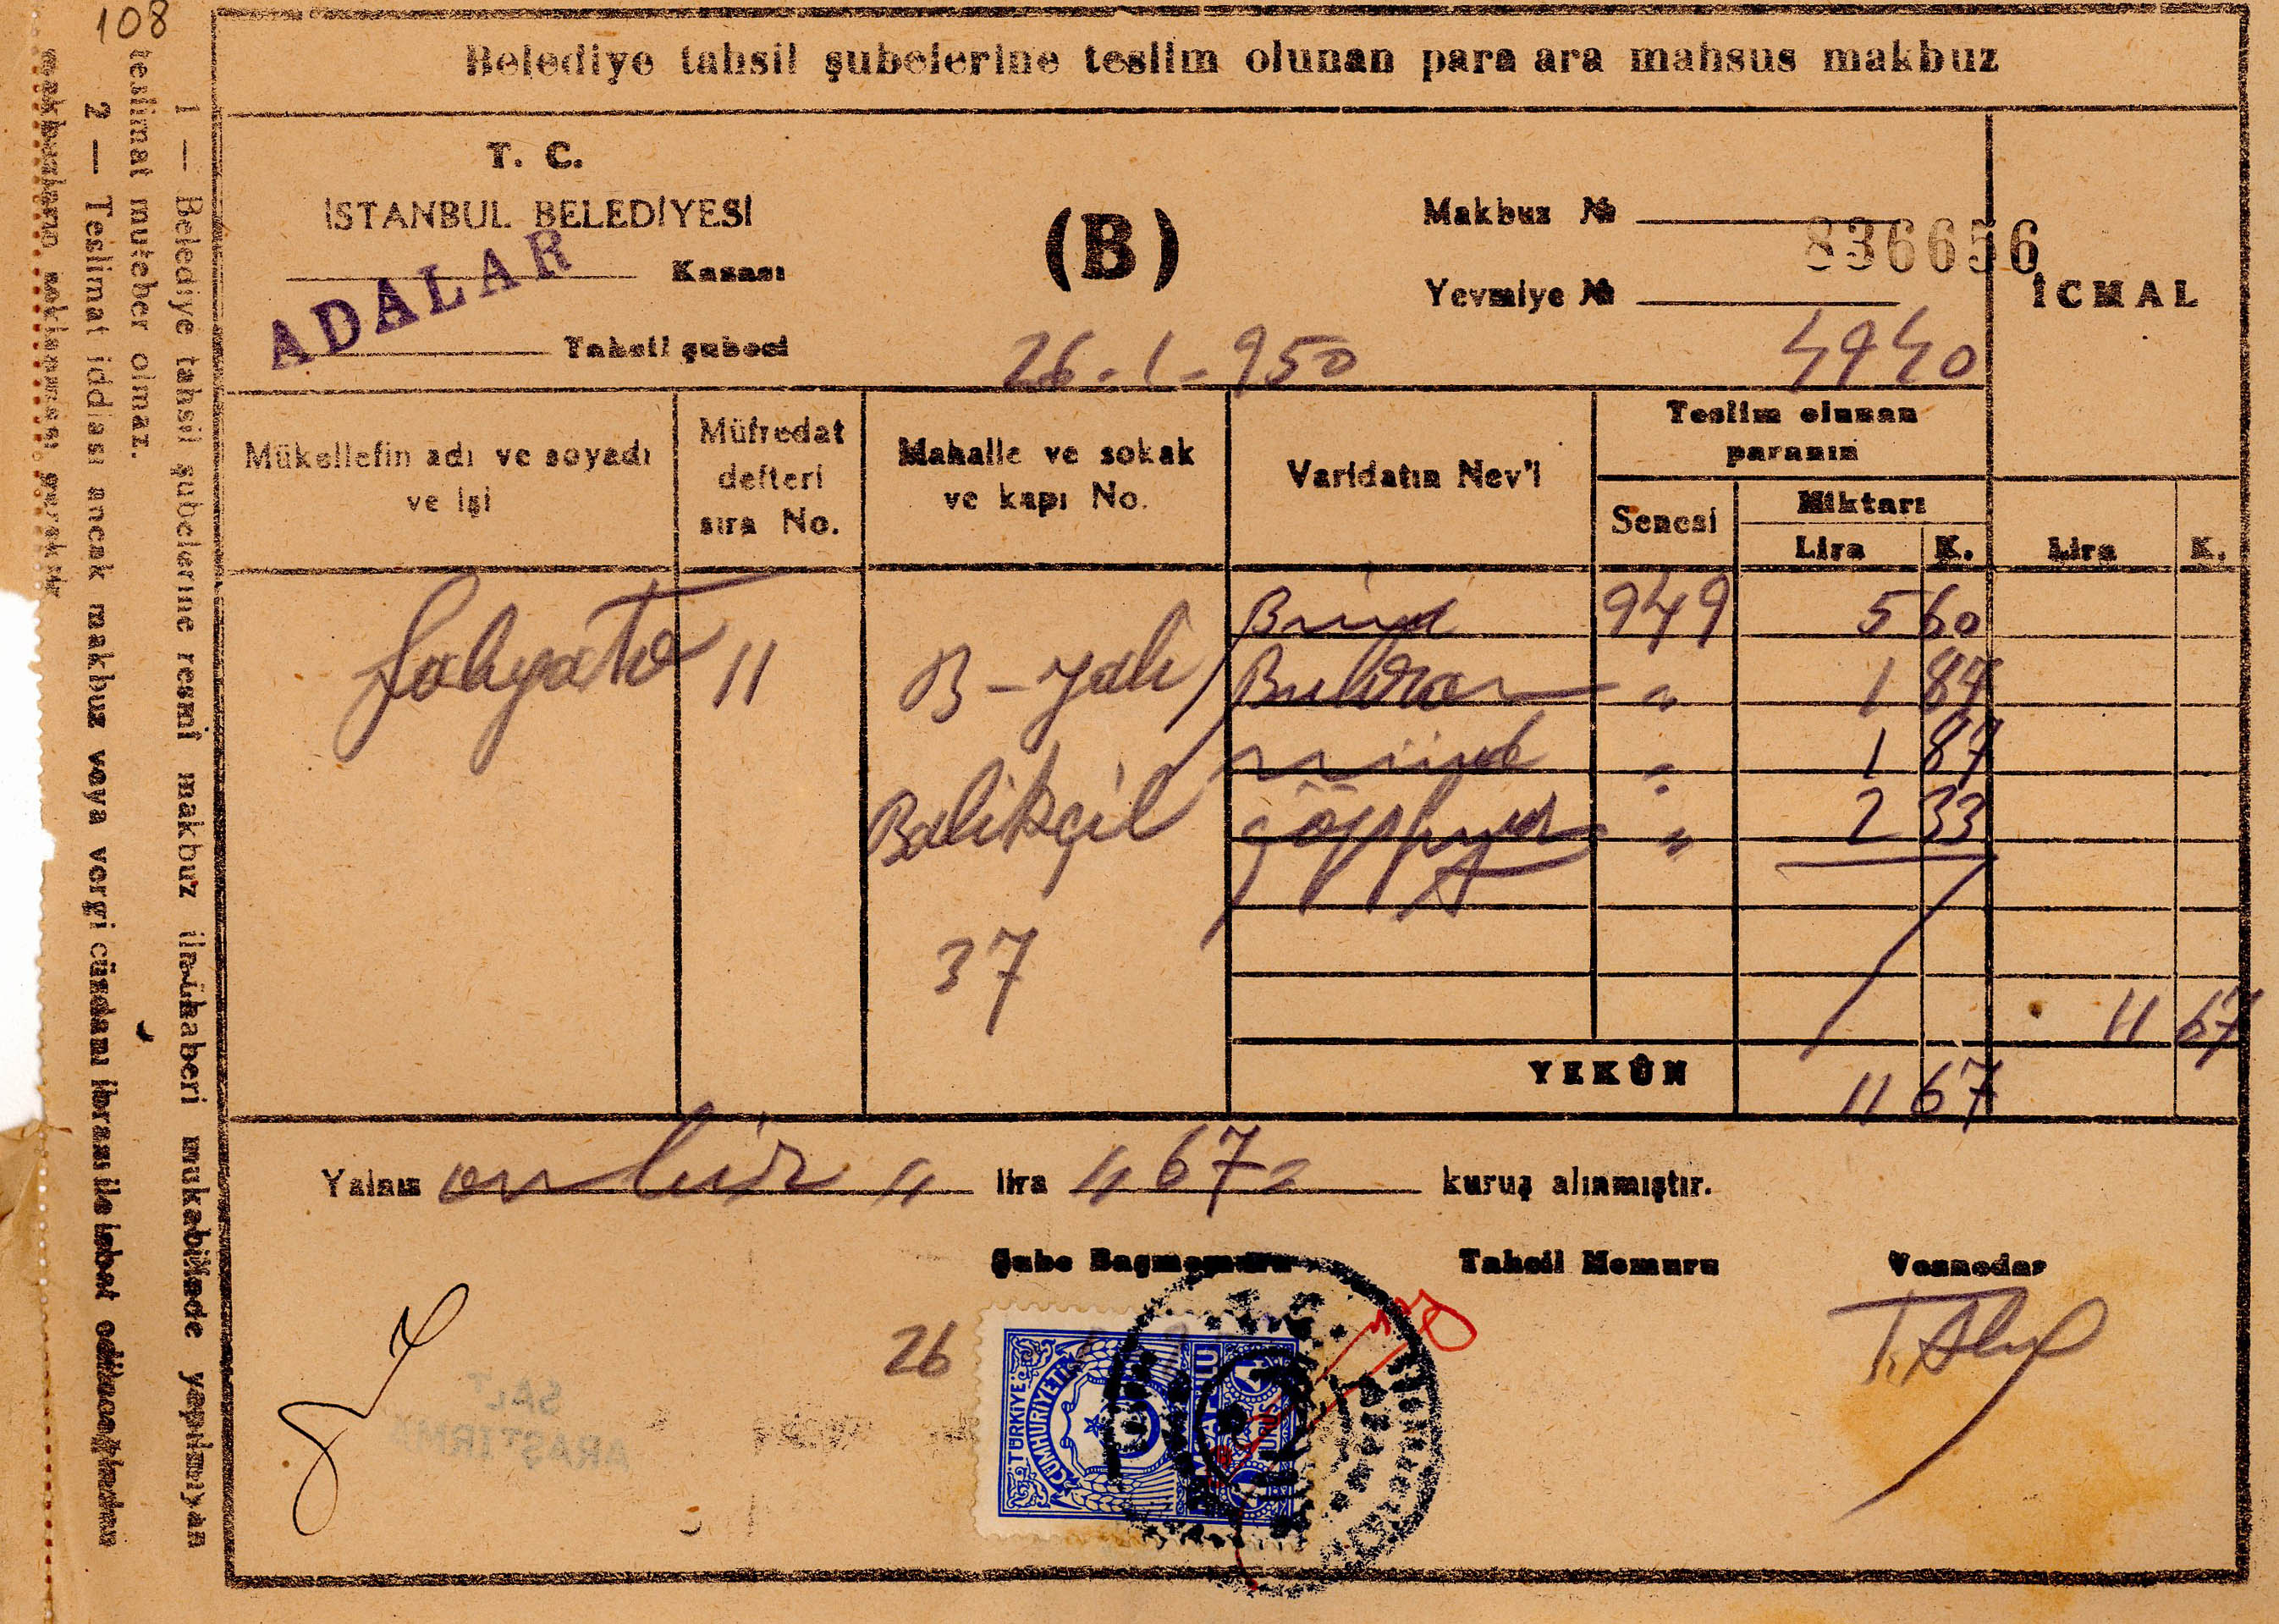 108
Belediye tahsil şubelerine teslim olunan para ara mahsus makbuz
T. C.
İSTANBUL BELEDİYESİ
Kazası
ADALAR
Tahsil şubesi
(B)
26 - 1 - 950
Makbuz №
836656
Yevmiye №
4940
İCMAL
Mükellefin adı ve soyadı ve işi
Müfredat defteri sıra No.
Mahalle ve sokak ve kapı No.
Varidatın Nev'i
Teslim olunan paranın
Senesi
Miktarı
Lira K.
Lira K.
11 B-Yalı Bina 949 5 60
Buhran " 1 87
" 1 87
Balıkçıl " 2 33
37
11 67
YEKÛN 11 67
Yalnız onbir " lira " 67 " kuruş alınmıştır.
Şube Başmemuru Tahsil Memuru Veznedar
26
TÜRKİYE
CUMHURİYETİ
SALT
ARAŞTIRMA
1 — Belediye tahsil şubelerine resmî makbuz ilmühaberi mukabilinde yapılmıyan
teslimat muteber olmaz.
2 — Teslimat iddiası ancak makbuz veya vergi cüzdanı ibrazı ile isbat edileceğinden
makbuzların saklanması gerektir